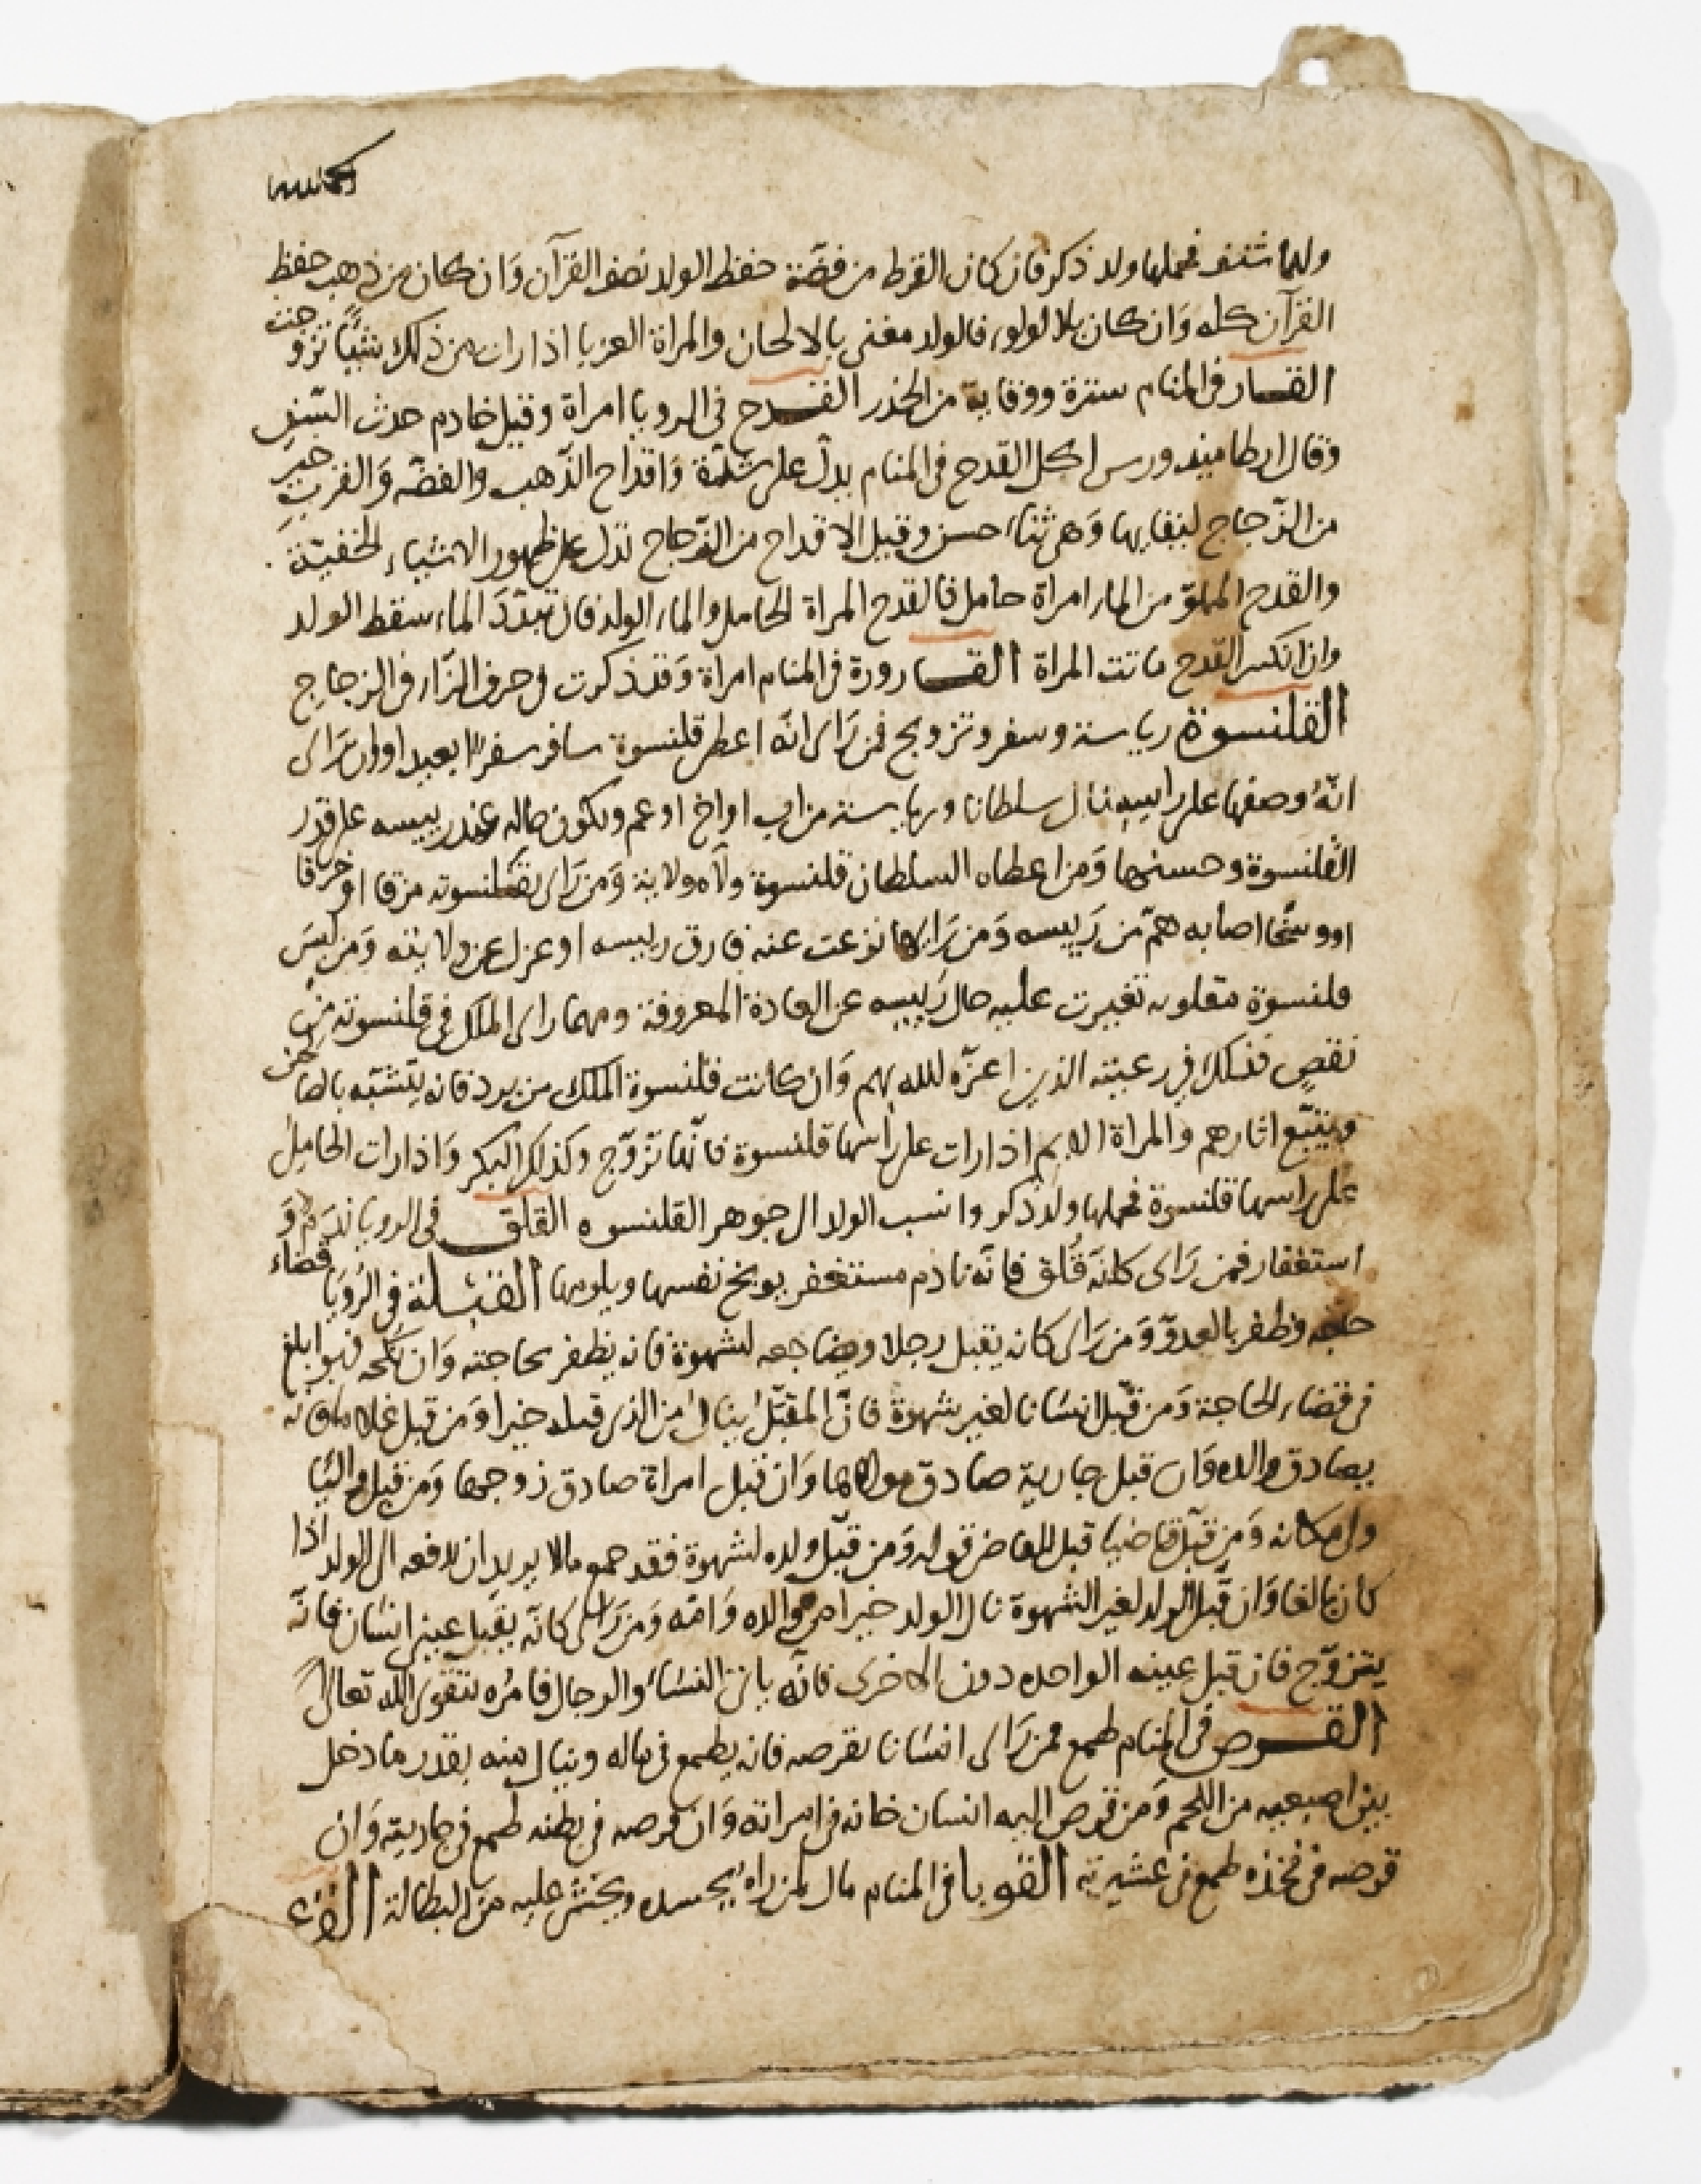 ولها شنف فحملها ولد ذكر فان كان القرط من فضّة حفظ الولد نصف القرآن وَان كان من ذهب حفظ
القرآن كله وَان كان بلا لولو، فالولد مغنى بالالحان والمراة العزبا اذا رات من ذلك شيًّا تزوجت
القسار فى المنام سترة ووقاية من الحذر القدح فى الرويا امراة وقيل خادم حدث السّنِ
وقال ارطاميدورس اكل القدح فى المنام يدلّ على شدّة وَاقداح الذّهب والفضّه وَالقرب خير
من الزّجاج لبقايها وَهى ثناء حسن وقيل الاقداح من الزّجاج تدل على ظهور الاشياء الخفيّة
والقدح المملوّ من الماء امراة حامل فالقدح المراة الحامل والماء الولد فان تبدّدَ الماء سقط الولد
وان انكسر القدح ماتت المراة القارورة فى المنام امراة وَقد ذكرت فى حرف الزّاء فى الزجاج
القلنسوة رياسة وسفر وتزويج فمن رَاى انّه اعطى قلنسوة سافر سفرًا بعيدا وان رَاى
انّهُ وضعها على راسِه نال سلطانا ورياسة من اب او اخ او عم ويكون حاله عند رييسه على قدر
القلنسوة وحسنها وَمن اعطاه السلطان قلنسوة ولّاه ولاية وَمن رَاى بقلنسوته مزقا او خرقا
او وسخًا اصابه همّ من رَييسه وَمن رَاى انها نزعت عنه فارق رييسه او عزل عن ولايته وَمن لبسَ
قلنسوة مقلوبه تغيرت عليه حال رَييسه عن العادة المعروفة ومهما راى الملك فى قلنسوته من
نقصٍ فذلك فى رعيته الذين اعزّه الله بهم وَان كانت قلنسوة الملك من برد فانه يتشبّه بالصالحين
ويتبّع اثارهم والمراة الايم اذا رات على راسها قلنسوة فانّها تزوّج وكذلك البكر وَاذا رات الحامِل
على راسها قلنسوة فحملها ولد ذكر وانسب الولد الى جوهر القلنسوه القلق فى الرويا ندَم وَ
استغفار فمن رَاى كانّه قُلق فانّه نادم مستغفر يوبخ نفسها ويلومها القبلة فى الرُويَا قضاء
حاجه وظفر بالعدوّ وَمن رَاى كانه يقبل رجلا ويضاجعه لشهوة فانه يظفر بحاجته وَان نكحه فهو ابلغ
فى قضاء الحاجة وَمن قبّل انسَانا لغير شهوة فانّ المقبّل ينال من الذى قبله خيرا وَمن قبل غلاما فانه
يصادق والده وَان قبل جارية صادق مولاها وَان قبل امراة صادق زوجها وَمن قبل واليًا
ولى مكانه وَمن قبّل قاضيا قبل القاضى قوله وَمن قبّل ولده لشهوة فقد جمع مالا يريد ان يدفعه الى الولد اذا
كان بالغا وَان قبّل الولد لغير الشهوة نال الولد خيرا من والده وَامّه وَمن رَاى كانّه يقبّل عين انسَان فانّه
يتزوّج فان قبل عينه الواحده دون الاخرى فانّه ياتى النسَاء والرجال فامُره بتقوى الله تعالى
القرص فى المنام طمع فمن رَاى انسَانا يقرصه فانه يطمع فى ماله وينال منه بقدر ما دخل
بين اصبعيه من اللحم وَمن قرص اليه انسان خانه فى امراته وَان قرصه فى بطنه طمع فى جاريته وَان
قرصه فى فخذه طمع فى عشيرته القوبا فى المنام مال لمن راه بجسده ويخشى عليه من البطالة